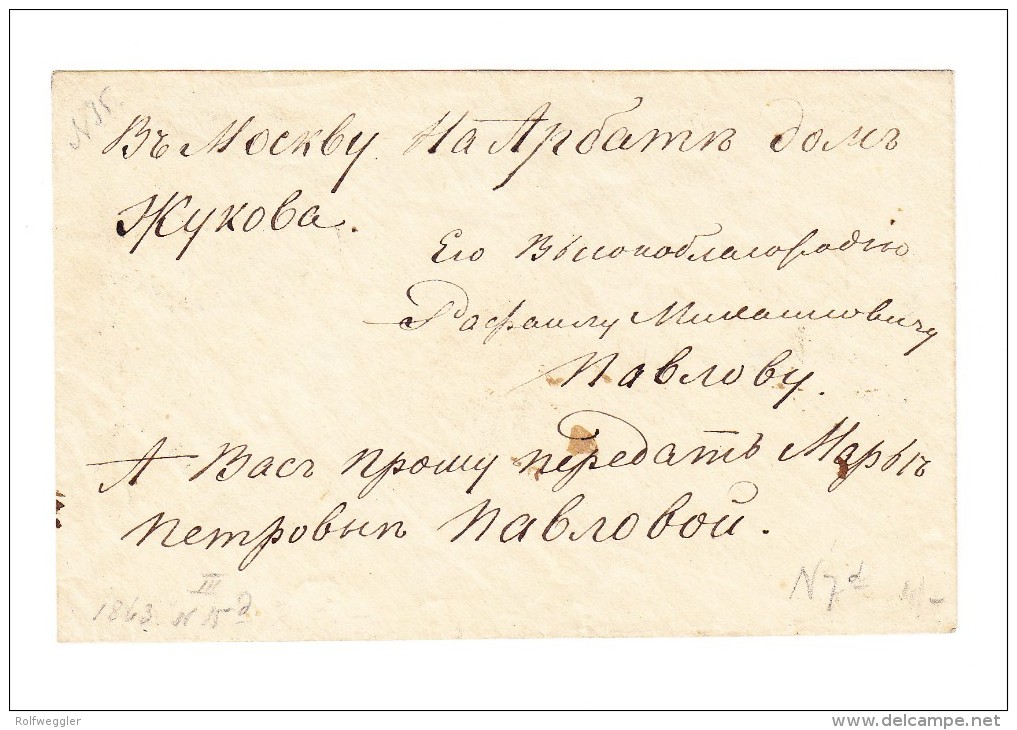 N 15.
Въ Москву. На Арбатѣ домъ
Жукова.
Его Высокоблагородію
Рафаилу Михаиловичу
Павлову.
А Васъ прошу передать Марьѣ
Петровнѣ Павловой.
III
1863. N 15
N 7
Rolfweggler
delcampe.net